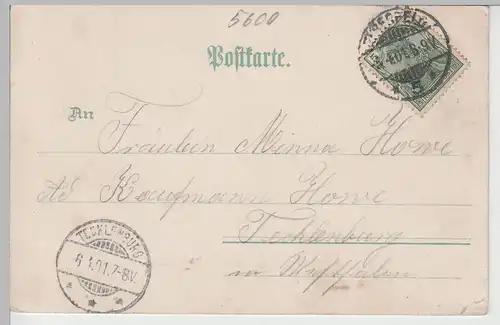 5600
Postkarte.
An
Fräulein Minna Howe
Ad Kaufmann Howe
Tecklenburg
in Westfalen
TECKLENBURG
6.1.01.7-8V.